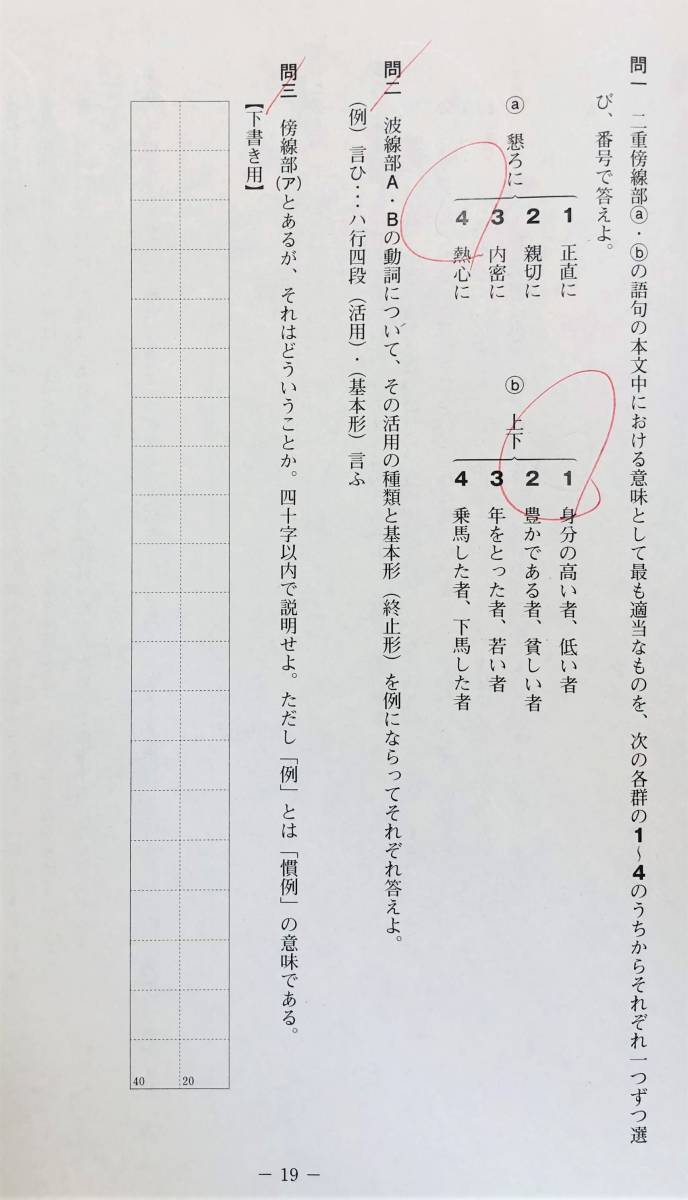 問一　二重傍線部ⓐ・ⓑの語句の本文中における意味として最も適当なものを、次の各群の1～4のうちからそれぞれ一つずつ選
び、番号で答えよ。
ⓐ　懇ろに
1　正直に
2　親切に
3　内密に
4　熱心に
ⓑ　上下
1　身分の高い者、低い者
2　豊かである者、貧しい者
3　年をとった者、若い者
4　乗馬した者、下馬した者
問二　波線部A・Bの動詞について、その活用の種類と基本形（終止形）を例にならってそれぞれ答えよ。
（例）言ひ…ハ行四段（活用）・（基本形）言ふ
問三　傍線部(ア)とあるが、それはどういうことか。四十字以内で説明せよ。ただし「例」とは「慣例」の意味である。
【下書き用】
20
40
― 19 ―